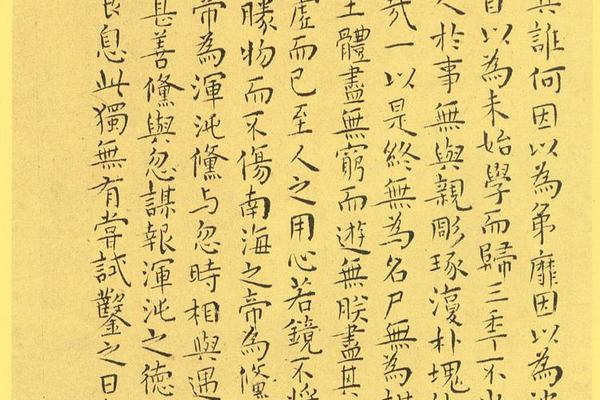 其誰何因以為弟靡因以為波
自以為未始學而歸三年不出
人於事無與親彫琢復朴塊
哉一以是終無為名尸無為謀
主體盡無窮而遊無朕盡其
虛而已至人之用心若鏡不將
勝物而不傷南海之帝為儵
帝為渾沌儵与忽時相與遇
甚善儵與忽謀報渾沌之德
食息此獨無有嘗試鑿之日